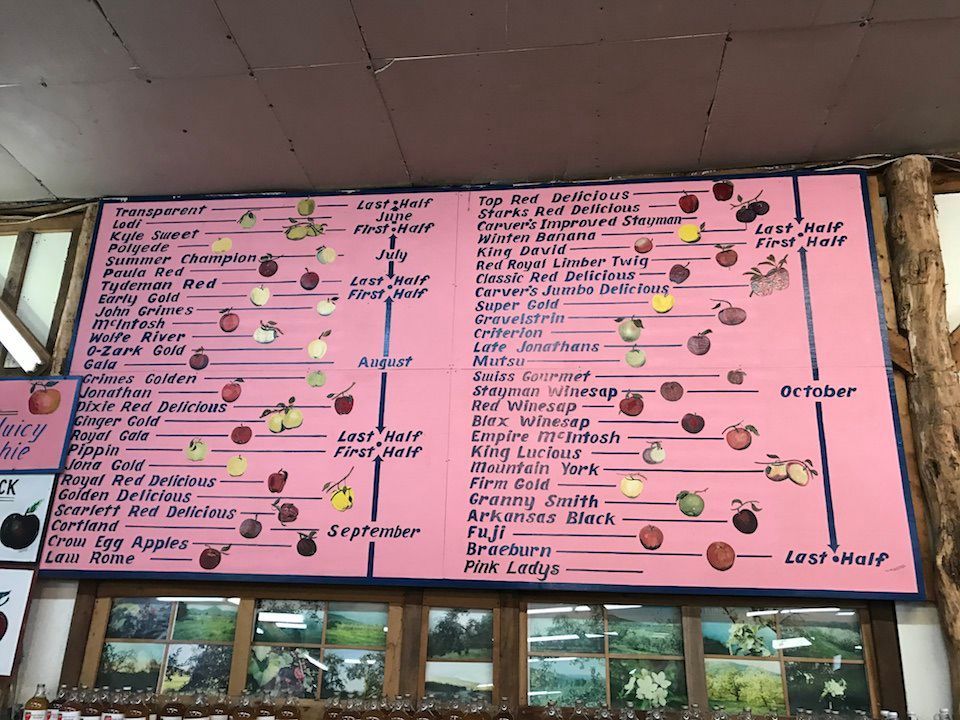 Transparent
Lodi
Kyle Sweet
Polyede
Summer Champion
Paula Red
Tydeman Red
Early Gold
John Grimes
McIntosh
Wolfe River
O-Zark Gold
Gala
Grimes Golden
Jonathan
Dixie Red Delicious
Ginger Gold
Royal Gala
Pippin
Jona Gold
Royal Red Delicious
Golden Delicious
Scarlett Red Delicious
Cortland
Crow Egg Apples
Law Rome
Last Half
June
First Half
July
Last Half
First Half
August
Last Half
First Half
September
Top Red Delicious
Starks Red Delicious
Carver's Improved Stayman
Winten Banana
King David
Red Royal Limber Twig
Classic Red Delicious
Carver's Jumbo Delicious
Super Gold
Gravelstrin
Criterion
Late Jonathans
Mutsu
Swiss Gourmet
Stayman Winesap
Red Winesap
Blax Winesap
Empire McIntosh
King Lucious
Mountain York
Firm Gold
Granny Smith
Arkansas Black
Fuji
Braeburn
Pink Ladys
Last Half
First Half
October
Last Half
Juicy